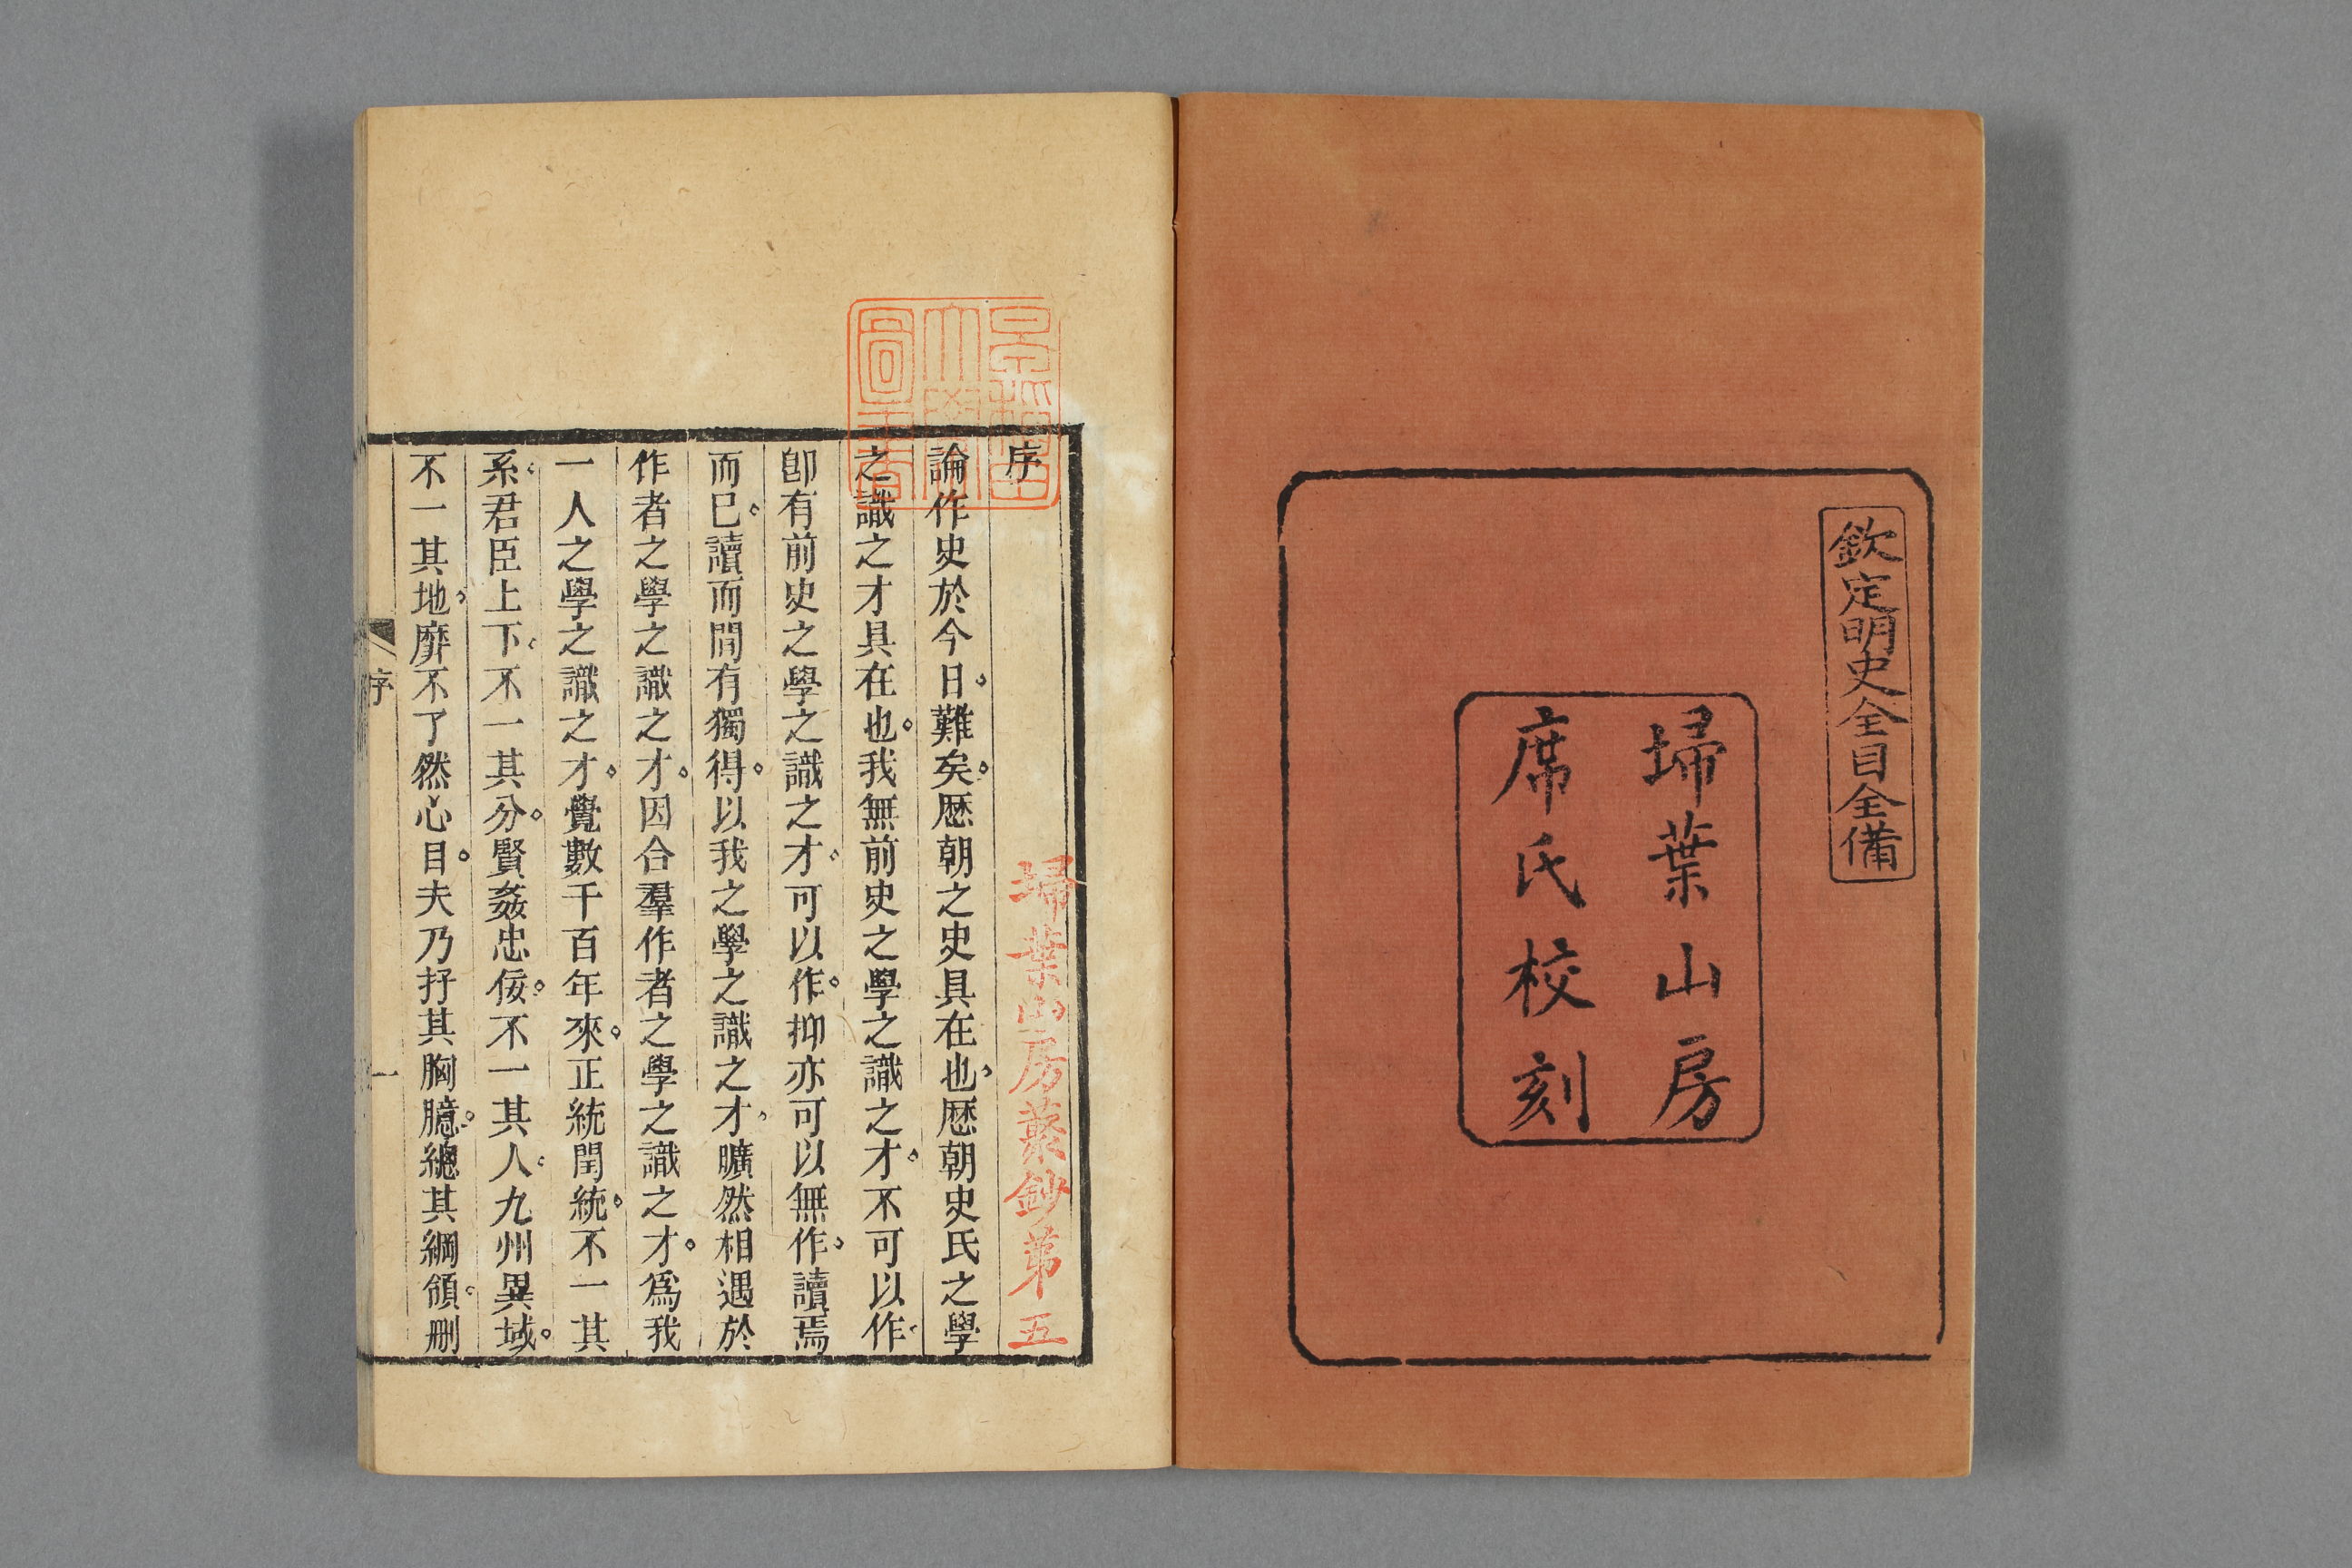 欽定明史全目全備
埽葉山房
席氏校刻
序
埽葉山房叢鈔第五
論作史於今日難矣歷朝之史具在也歷朝史氏之學
之識之才具在也我無前史之學之識之才不可以作
卽有前史之學之識之才可以作抑亦可以無作讀焉
而已讀而間有獨得以我之學之識之才曠然相遇於
作者之學之識之才因合羣作者之學之識之才爲我
一人之學之識之才覺數千百年來正統閏統不一其
系君臣上下不一其分賢姦忠佞不一其人九州異域
不一其地靡不了然心目夫乃抒其胸臆總其綱領删
序
一